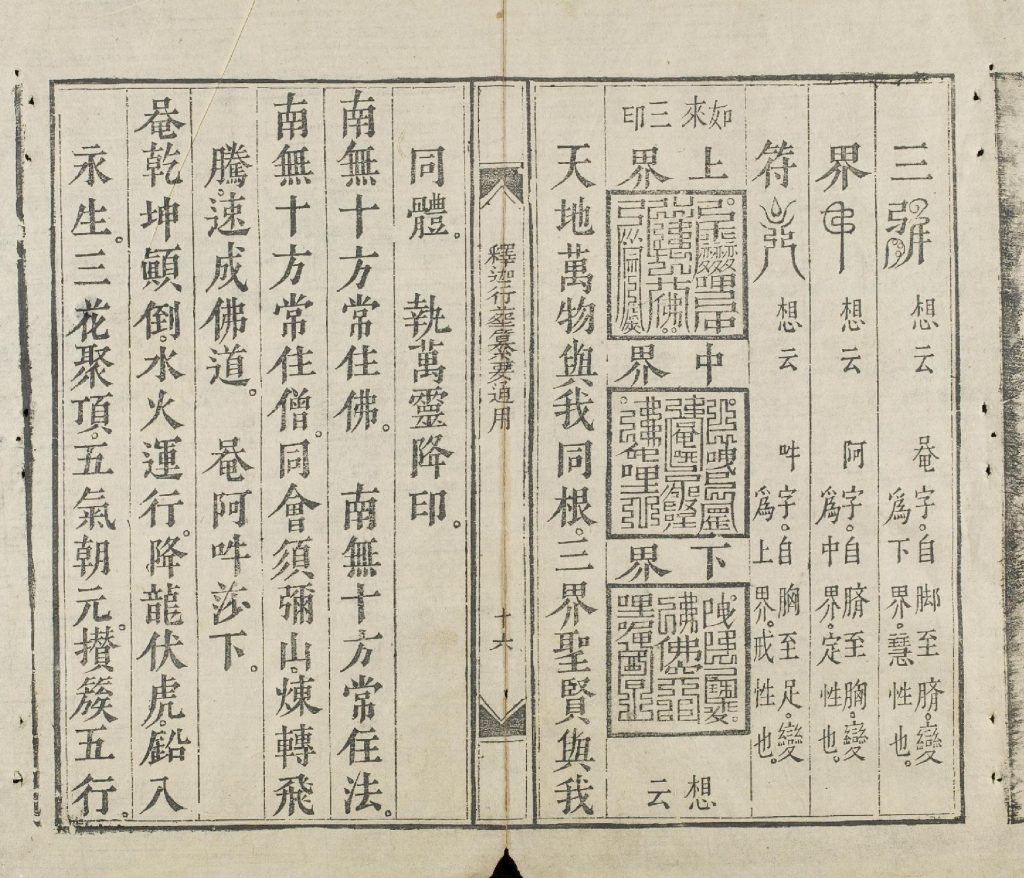 三 想云 菴字。自脚至臍。變為下界。慧性也。
界 想云 阿字。自臍至胸。變為中界。定性也。
符 想云 吽字。自胸至足。變為上界。戒性也。
如來三印 上界 中界 下界 想云
天地萬物與我同根。三界聖賢與我
釋迦行纂要通用 十六
同體。 執萬靈降印。
南無十方常住佛。 南無十方常住法。
南無十方常住僧。同會須彌山。煉轉飛
騰。速成佛道。 菴阿吽莎下。
菴乾坤顛倒。水火運行。降龍伏虎。鉛入
永生。三花聚頂。五氣朝元。攢簇五行。